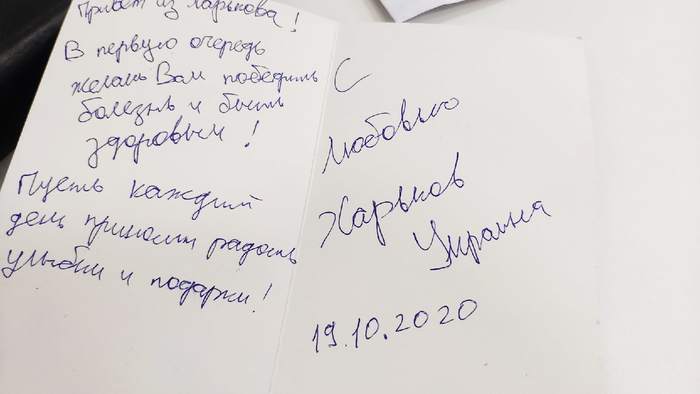 Привет из Харькова!
В первую очередь
желаю Вам победить
болезнь и быть
здоровым!
Пусть каждий
день приносит радость
улыбки и подарки!
С
Любовью
Харьков
Украина
19.10.2020